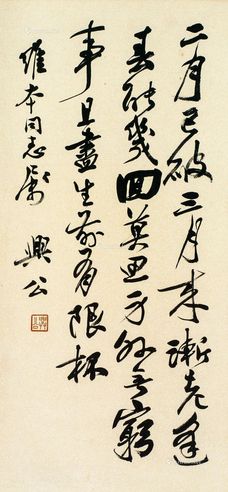 二月已破三月来渐老逢
春能幾回莫思身外無窮
事且盡生前有限杯
維本同志屬
興公